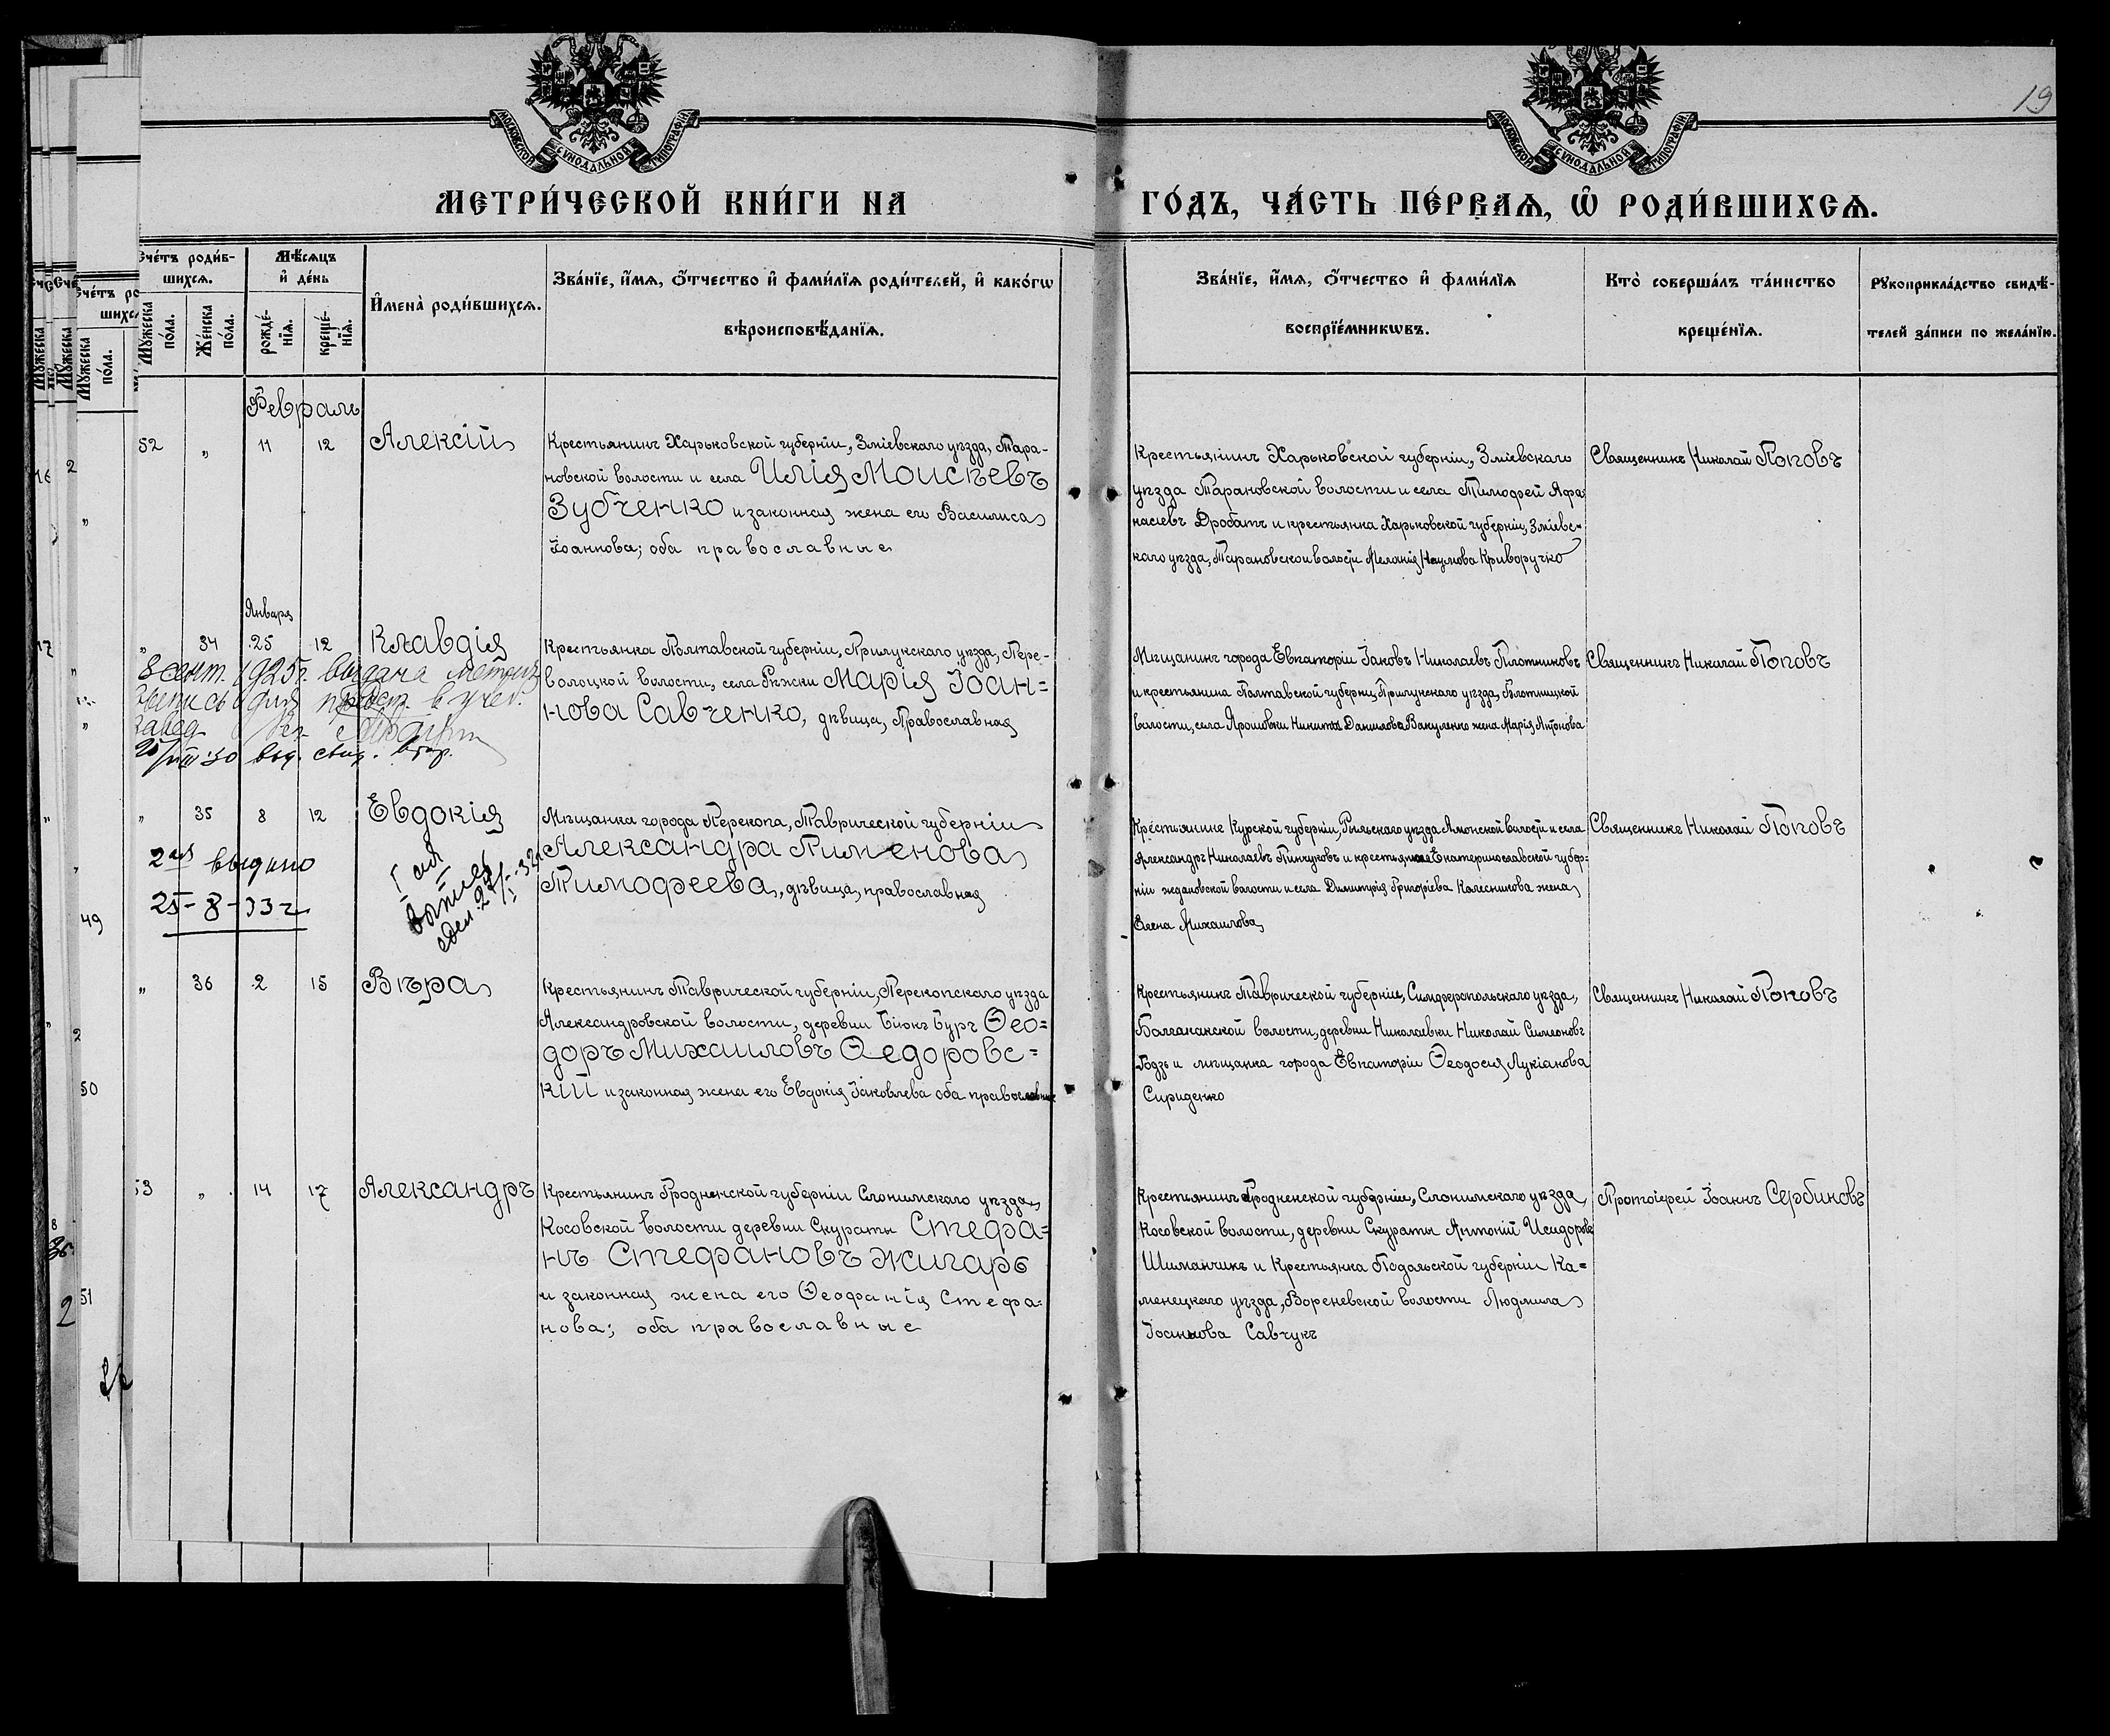 МОСКОВСКОЙ СУНОДАЛЬНОЙ ТИПОГРАФІИ
МОСКОВСКОЙ СУНОДАЛЬНОЙ ТИПОГРАФІИ
19
МЕТРИ́ЧЕСКОЙ КНИ́ГИ НА
ГО́ДЪ, ЧА́СТЬ ПЕ́РВАѦ, Ѡ҆ РОДИ́ВШИХСѦ.
Сче́тъ роди́в-
шихсѧ.
Мꙋ́жеска по́ла.
Же́нска по́ла.
Мѣ́сѧцъ
и҆ де́нь
рожде́-нїѧ.
креще́-нїѧ.
И҆мена̀ роди́вшихсѧ.
Зва́нїе, и҆́мѧ, ѻ҆́тчество и҆ фами́лїѧ роди́телей, и҆ како́гѡ
вѣроисповѣ́данїѧ.
Зва́нїе, и҆́мѧ, ѻ҆́тчество и҆ фами́лїѧ
воспрїе́мникѡвъ.
Кто̀ соверша́лъ та́инство
креще́нїѧ.
Рꙋкоприкла́дство свидѣ́-
телей за́писи по жела́нїю.
Февраль
52 „ 11 12 Алексій
Крестьянинъ Харьковской губерніи, Зміевскаго уѣзда, Тара-
новской волости и села Илія Моисѣевъ
Зубченко и законная жена его Василиса
Іоаннова; оба православные
Крестьянинъ Харьковской губерніи, Зміевскаго
уѣзда Тарановской волости и села Тимофей Афа
насіевъ Дробатъ и крестьянка Харьковской губерніи, Зміевс-
каго уѣзда, Тарановской волости Меланія Наумова Криворучко
Священникъ Николай Поповъ
Января
„ 34 25 12 Клавдія
8 сент. 1925г. выдана метрич
запись для предст. в учеб.
завед.
Крестьянка Полтавской губерніи, Прилукскаго уѣзда, Пере-
волоцкой волости, села Ряжски Марія Іоан=
нова Савченко, дѣвица, Православная
Мѣщанинъ города Евпаторіи Іаковъ Николаевъ Плотниковъ
и крестьянина Полтавской губерніи, Прилукскаго уѣзда,
волости, села Ярошовки Никиты Данилова Вакуленко жена Марія Антонова
Священникъ Николай Поповъ
„ 35 8 12 Евдокія
2ая выдано
25-8-33г
выписка
Мѣщанка города Перекопа, Таврической губерніи
Александра Пименова
Тимофеева, дѣвица, православная
Крестьянинъ Курской губерніи, Рыльскаго уѣзда Амонской волости и села
Александръ Николаевъ Пинчуковъ и крестьянина Екатеринославской губер=
ніи ждановской волости и села Димитрія Григоріева Калесникова жена
Елена Михаилова
Священникъ Николай Поповъ
„ 36 2 15 Вѣра
Крестьянинъ Таврической губерніи, Перекопскаго уѣзда
Александровской волости, деревни Біюкъ Бугъ Ѳео=
доръ Михаиловъ Ѳедоровс=
кій и законная жена его Евдокія Іаковлева оба православные
Крестьянинъ Таврической губерніи, Симферопольскаго уѣзда,
Балганакской волости, деревни Николаевки Николай Симеоновъ
Годзь и мѣщанка города Евпаторіи Ѳеодосія Лукіанова
Сириденко
Священникъ Николай Поповъ
53 „ 14 17 Александръ
Крестьянинъ Гродненской губерніи Слонимскаго уѣзда
Косовской волости деревни Скураты Стефа=
нъ Стефановъ Жигарь
и законная жена его Ѳеофанія Стефа-
нова; оба православные
Крестьянинъ Гродненской губерніи, Слонимскаго уѣзда
Косовской волости, деревни Скураты Антоній Исидоровъ
Шиманчикъ и Крестьянка Подольской губерніи Ка=
менецкаго уѣзда, Вореневской волости Людмила
Іоаннова Савчукъ
Протоіерей Іоаннъ Сербиновъ
49
50
51